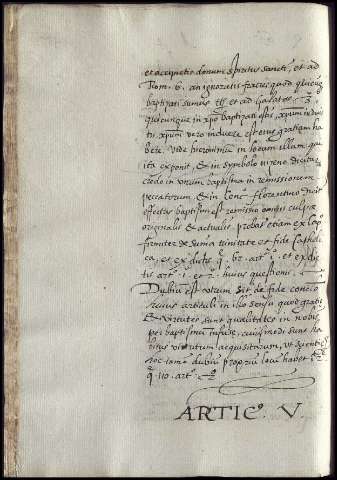 et accipietis donum spiritus sancti, et ad
Rom. 6. an ignoratis fratres quod quicunq
baptizati sumus et ad Galatas 3.
quicunque in xpo baptizati estis, xpum induis
tis, xpum vero induere est eius gratiam ha
bere. Vide hieronimu in locum illum, qui
ita exponit, & in symbolo niçeno dicitur
credo in unum baptisma in remissionem
peccatorum, & in conc. florentino dicit
effectus baptismi est remissio omnis culpæ
originalis & actualis. probat etiam ex cap.
firmiter de suma trinitate et fide catholi
ca, et ex dictis q. 62. art. et ex dic
tis art. 1. et 2. huius questionis.
Dubiu est utrum sit de fide conclu
huius articuli in illo sensu quod gratia
& virtutes sunt qualitates in nobis
per baptismu infusæ, cuiusmodi sunt ha
bitus virtutum acquisitarum, ut
hoc tamen dubiu propriu locu habet
q. 110. art.
ARTIC. V.